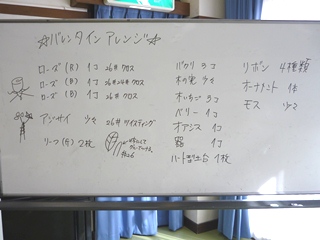 ☆バレンタイン アレンジ☆
ローズ(R) 1コ 26# クロス
ローズ(B) 1コ 26#24# クロス
ローズ(B) 1コ 26# クロス
アジサイ 少々 26# ツイスティング
リーフ(G) 2枚
#26
バラリ 3コ
木の実 少々
木いちご 3コ
ベリー 1コ
オアシス 1コ
器 1コ
ハート型土台 1枚
リボン 4種類
オーナメント 1本
モス 少々